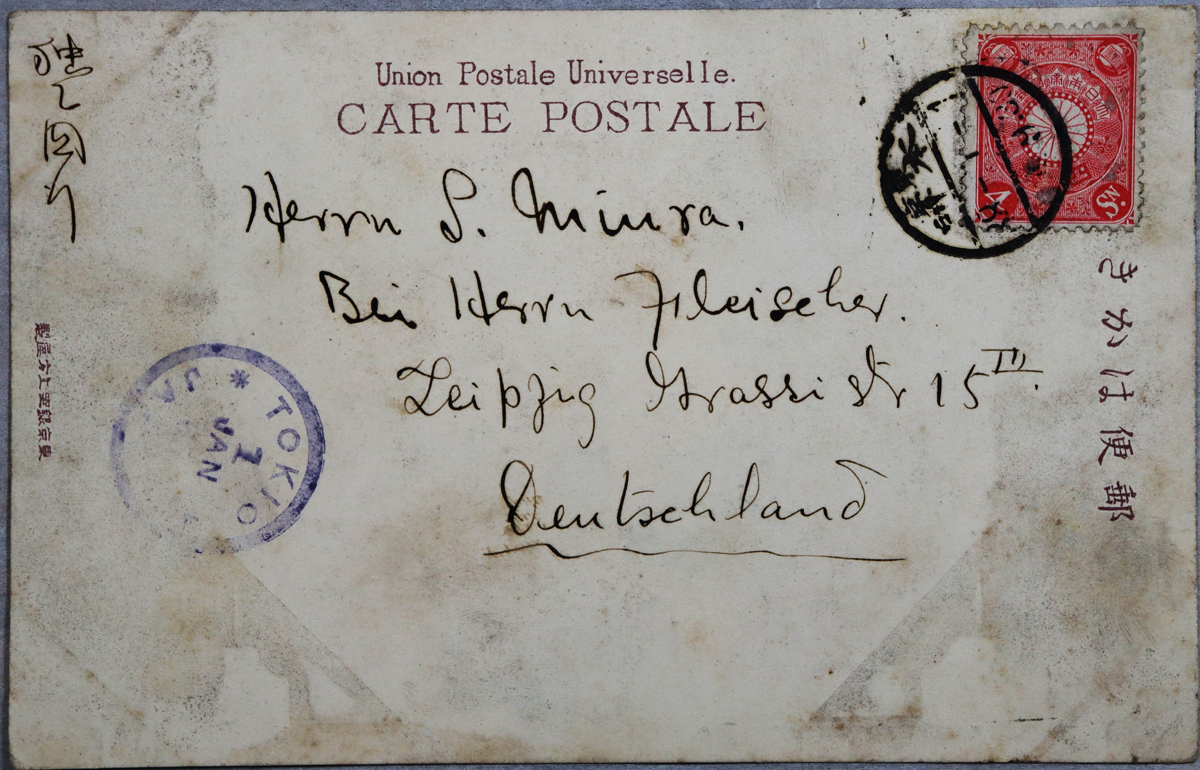 独乙国行
Union Postale Universelle.
CARTE POSTALE
Herrn S. Miura.
Bei Herrn Fleischer.
Leipzig Grassi str 15 III.
Deutschland
郵便はかき
東京銀座上方屋製
TOKIO
JAN
4
SN.